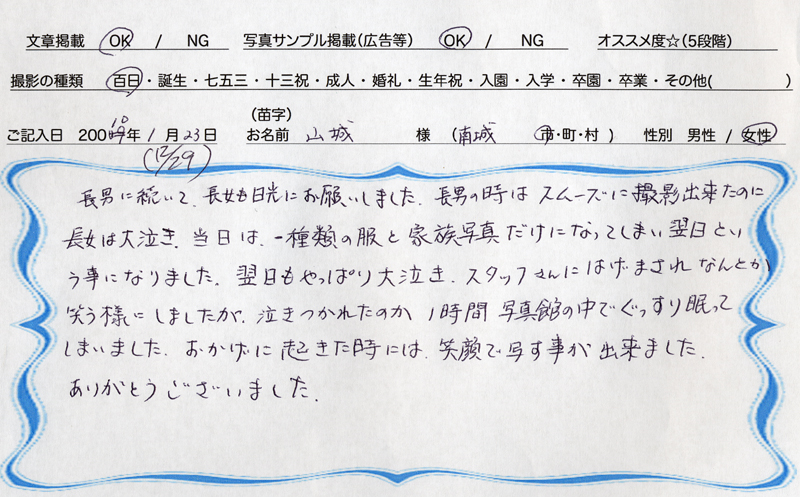 文章掲載 OK / NG 写真サンプル掲載(広告等) OK / NG オススメ度☆(5段階)
撮影の種類 百日・誕生・七五三・十三祝・成人・婚礼・生年祝・入園・入学・卒園・卒業・その他( )
(苗字)
ご記入日 200 10年 1月23日 お名前 山城 様 (南城 市・町・村) 性別 男性 / 女性
(12/29)
長男に続いて、長女も日光にお願いしました。長男の時はスムーズに撮影出来たのに
長女は大泣き。当日は、一種類の服と家族写真だけになってしまい翌日とい
う事になりました。翌日もやっぱり大泣き。スタッフさんにはげまされなんとか
笑う様にしましたが、泣きつかれたのか1時間写真館の中でぐっすり眠って
しまいました。おかげに起きた時には、笑顔で写す事が出来ました。
ありがとうございました。